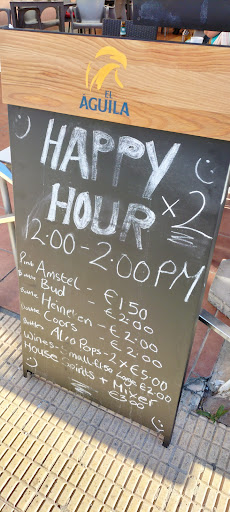 EL
ÁGUILA
HAPPY
HOUR x2
12:00 - 2:00PM
Pint Amstel - €1.50
Bottle Bud - €2.00
Bottle Heineken - €2.00
Bottle Coors - € 2.00
Bottle Alco Pops - 2 x €5.00
Wines - Small €1.50 Large €2.00
House Spirits + Mixer
€3.00